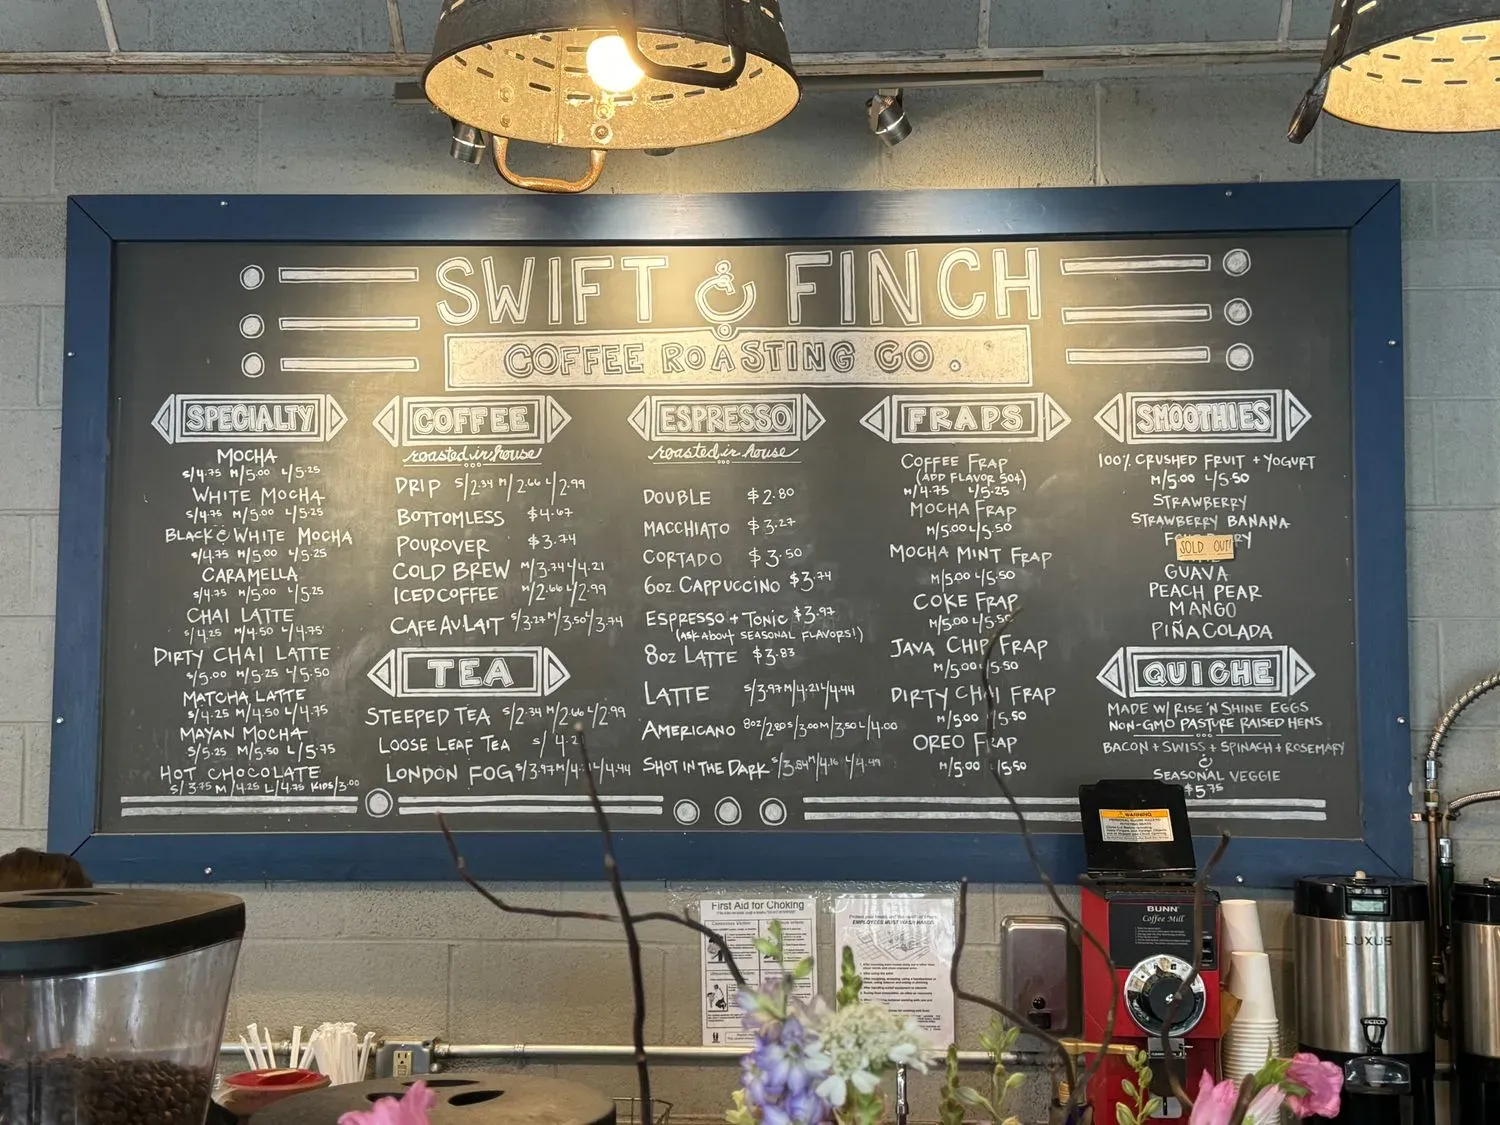 SWIFT & FINCH
COFFEE ROASTING CO.
SPECIALTY
MOCHA
S/4.75 M/5.00 L/5.25
WHITE MOCHA
S/4.75 M/5.00 L/5.25
BLACK & WHITE MOCHA
S/4.75 M/5.00 L/5.25
CARAMELLA
S/4.75 M/5.00 L/5.25
CHAI LATTE
S/4.25 M/4.50 L/4.75
DIRTY CHAI LATTE
S/5.00 M/5.25 L/5.50
MATCHA LATTE
S/4.25 M/4.50 L/4.75
MAYAN MOCHA
S/5.25 M/5.50 L/5.75
HOT CHOCOLATE
S/3.75 M/4.25 L/4.75 KIDS/3.00
COFFEE
roasted in house
DRIP S/2.34 M/2.66 L/2.99
BOTTOMLESS $4.67
POUROVER $3.74
COLD BREW M/3.74 L/4.21
ICED COFFEE M/2.66 L/2.99
CAFE AU LAIT S/3.27 M/3.50 L/3.74
TEA
STEEPED TEA S/2.34 M/2.66 L/2.99
LOOSE LEAF TEA S/
LONDON FOG S/3.97 M/ L/4.44
ESPRESSO
roasted in house
DOUBLE $2.80
MACCHIATO $3.27
CORTADO $3.50
6oz CAPPUCCINO $3.74
ESPRESSO + TONIC $3.97
(ASK ABOUT SEASONAL FLAVORS!)
8oz LATTE $3.83
LATTE S/3.97 M/4.21 L/4.44
AMERICANO 8oz/2.80 S/3.00 M/3.50 L/4.00
SHOT IN THE DARK S/3.84 M/4.16 L/4.49
FRAPS
COFFEE FRAP
(ADD FLAVOR 50¢)
M/4.75 L/5.25
MOCHA FRAP
M/5.00 L/5.50
MOCHA MINT FRAP
M/5.00 L/5.50
COKE FRAP
M/5.00 L/5.50
JAVA CHIP FRAP
M/5.00 L/5.50
DIRTY CHAI FRAP
M/5.00 L/5.50
OREO FRAP
M/5.00 L/5.50
SMOOTHIES
100% CRUSHED FRUIT + YOGURT
M/5.00 L/5.50
STRAWBERRY
STRAWBERRY BANANA
SOLD OUT!
GUAVA
PEACH PEAR
MANGO
PIÑA COLADA
QUICHE
MADE W/ RISE 'N SHINE EGGS
NON-GMO PASTURE RAISED HENS
BACON + SWISS + SPINACH + ROSEMARY
&
SEASONAL VEGGIE
$5.75
WARNING
First Aid for Choking
EMPLOYEES MUST WASH HANDS
BUNN
Coffee Mill
LUXUS